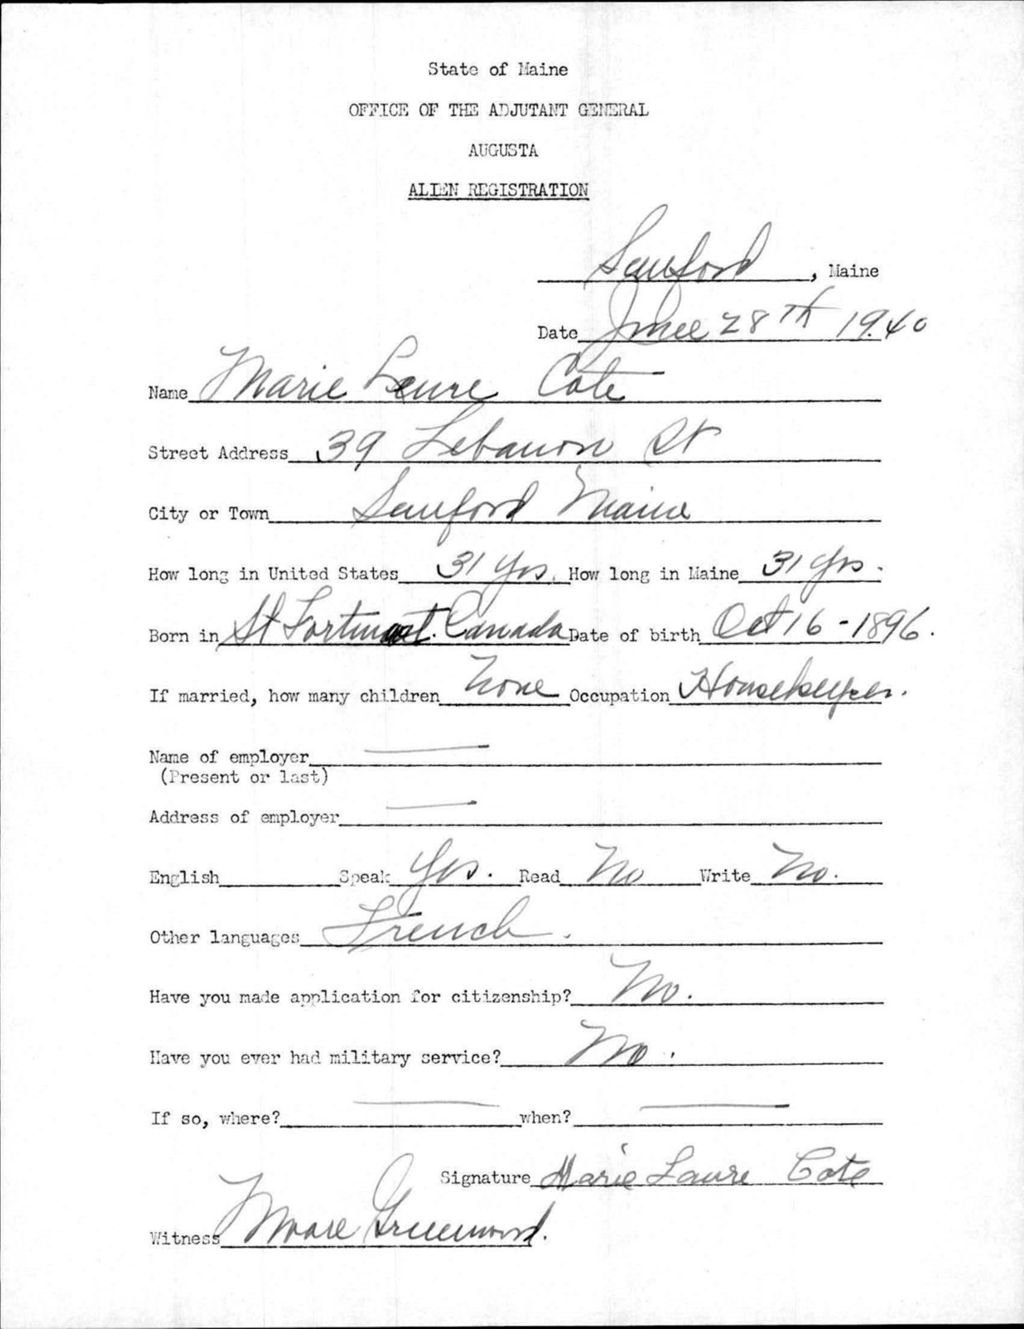 State of Maine
OFFICE OF THE ADJUTANT GENERAL
AUGUSTA
ALIEN REGISTRATION
Sanford, Maine
Date June 28th 1940
Name Marie Laure Cote
Street Address 39 Lebanon St
City or Town Sanford Maine
How long in United States 31 Yrs. How long in Maine 31 Yrs.
Born in St Canada Date of birth Oct 16-1896.
If married, how many children None Occupation Housekeeper.
Name of employer
(Present or last)
Address of employer
English Speak Yes. Read No Write No.
Other languages French.
Have you made application for citizenship? No.
Have you ever had military service? No.
If so, where? when?
Signature Marie Laure Cote
Witness Greenwood.